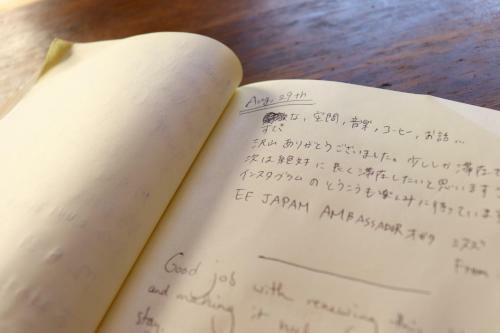 Aug. 29th
な, 空間, 音楽, コーヒー, お話...
すてき
沢山 ありがとうございました。少ししか滞在
次は絶対に 長く滞在したいと思います
インスタグラムの とうこうも楽しみに待っています
EF JAPAM AMBASSADOR
From
Good job with renewing this
and making it
stay.